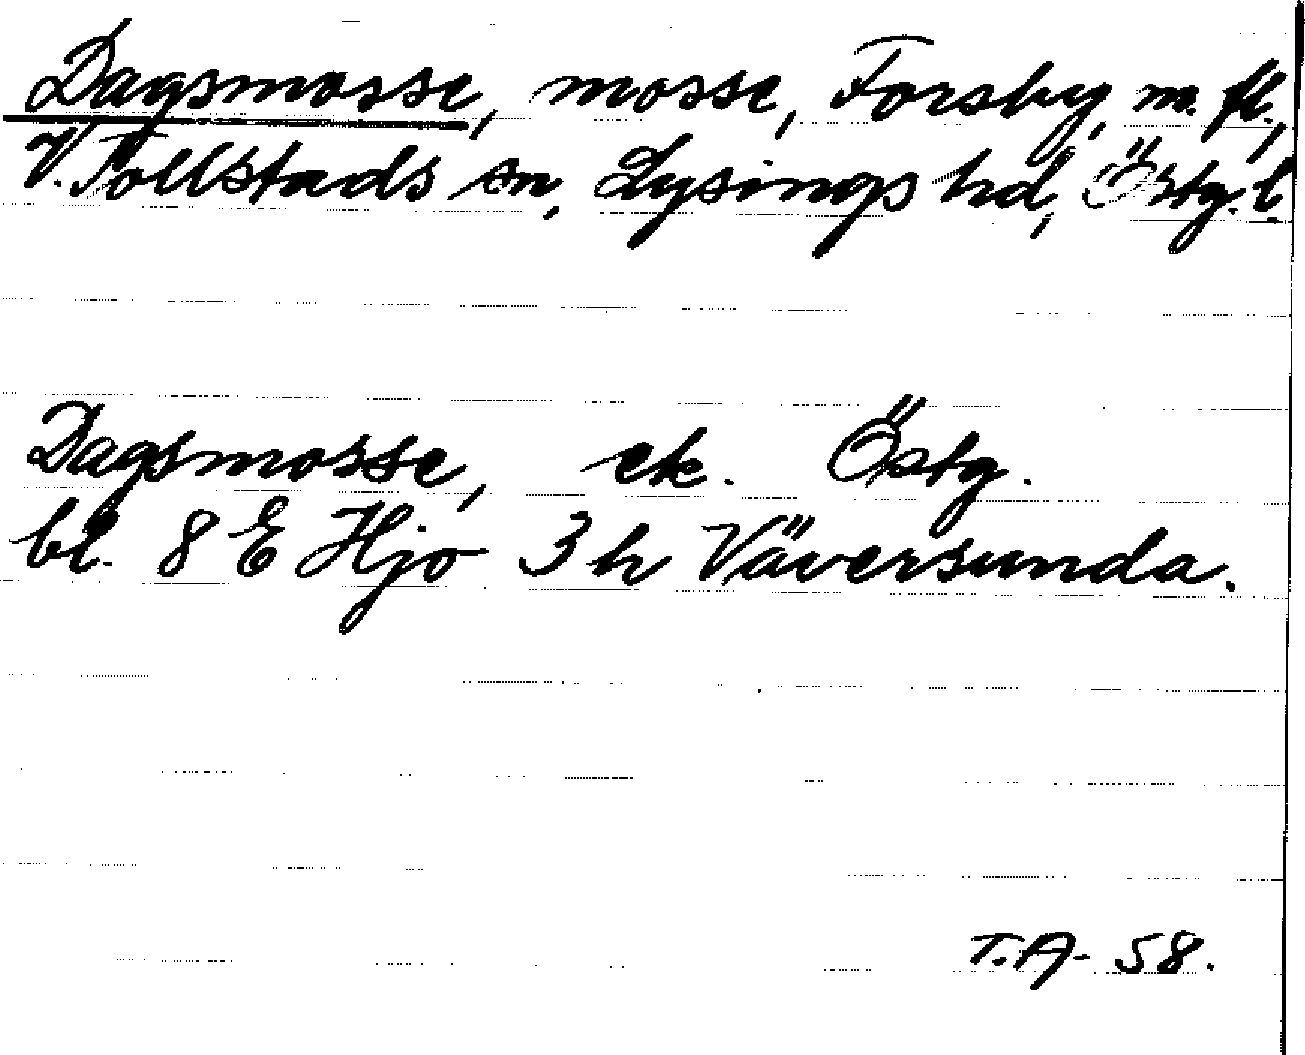 Dagsmosse, mosse, Forsby, m. fl.,
V. Tollstads sn, Lysings hd, Östg. l.
Dagsmosse, ek. Östg.
bl. 8 E Hjo 3 h Väversunda.
T.A. 58.